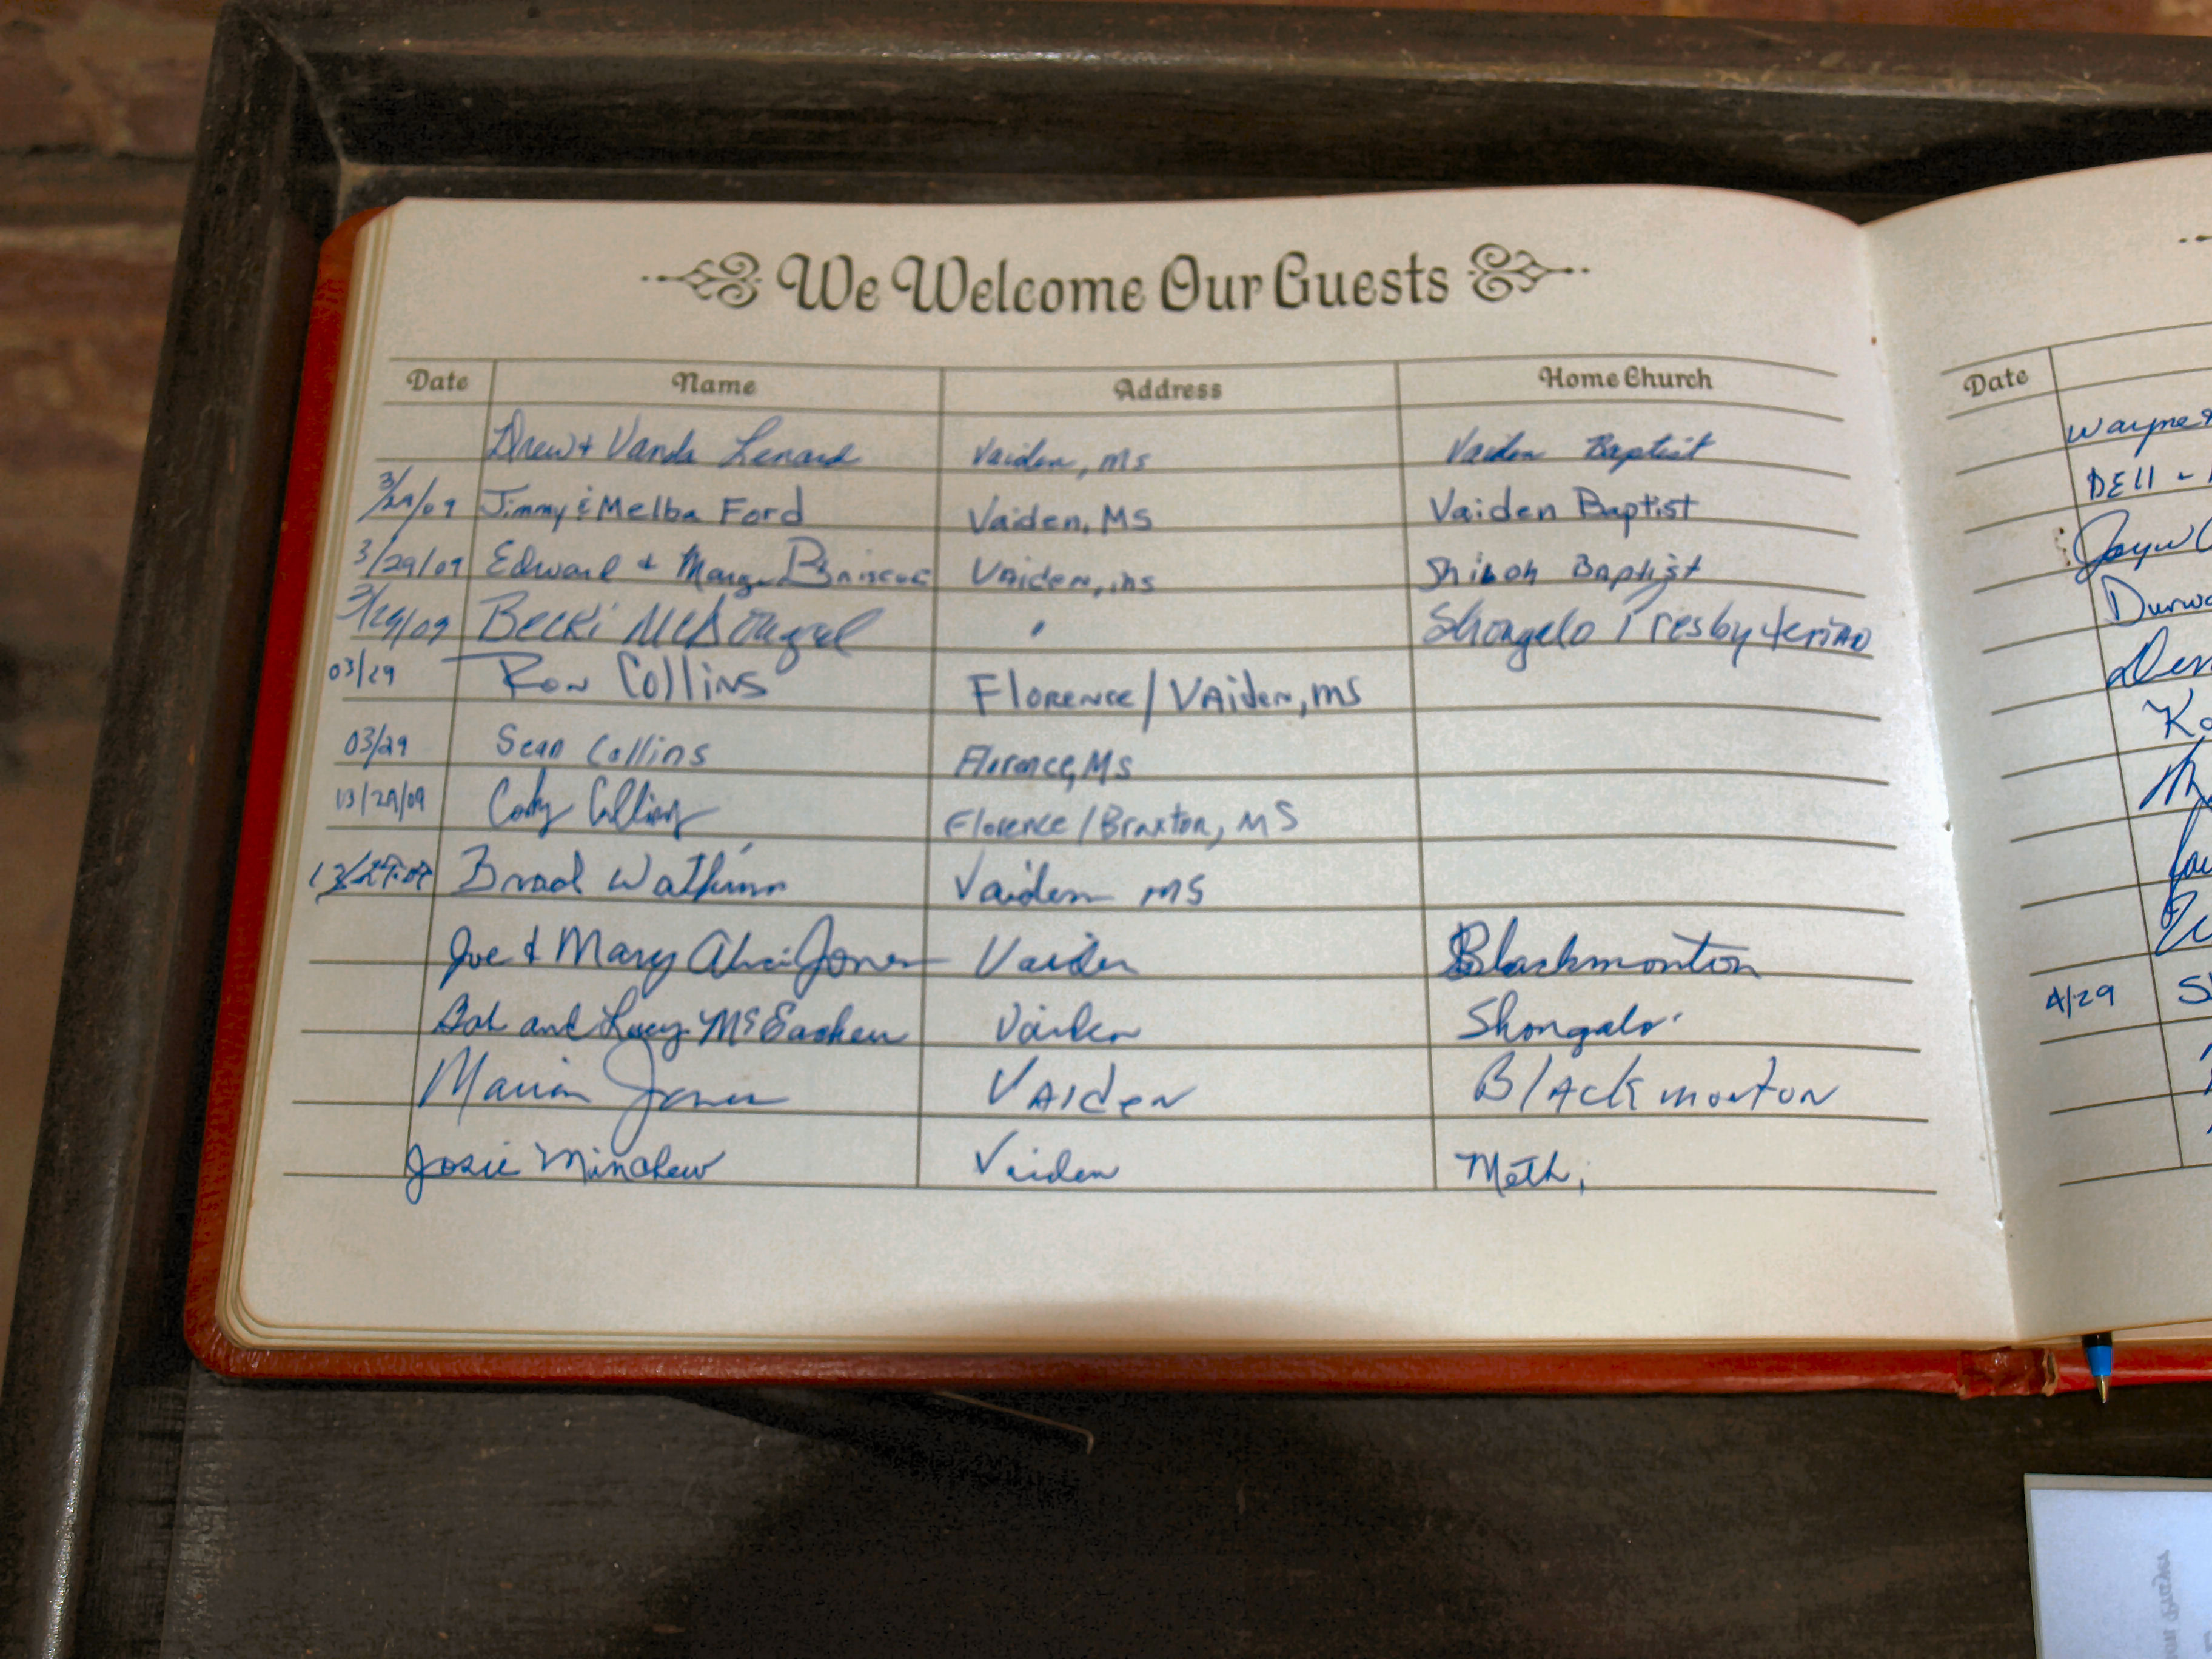 We Welcome Our Guests
Date Name Address Home Church
Drew + Vanda Lenard Vaiden, MS Vaiden Baptist
3/29/09 Jimmy & Melba Ford Vaiden, MS Vaiden Baptist
3/29/09 Edward + Marge Briscoe VAiden, ms Shiloh Baptist
3/29/09 Becki McDougal " Shongalo Presbyterian
03/29 Ron Collins Florence/VAiden, ms
03/29 Sean Collins Florence, MS
13/29/09 Cody Collins Florence/Braxton, MS
Brad Watkins Vaiden MS
Joe & Mary Jones Vaiden Blackmonton
Bob and Lucy McEachern Vaiden Shongalo
Marion Jones VAIden BlAckmonton
Josie Minchew Vaiden Meth,
Date
Wayne &
DEll
Durwo
4/29